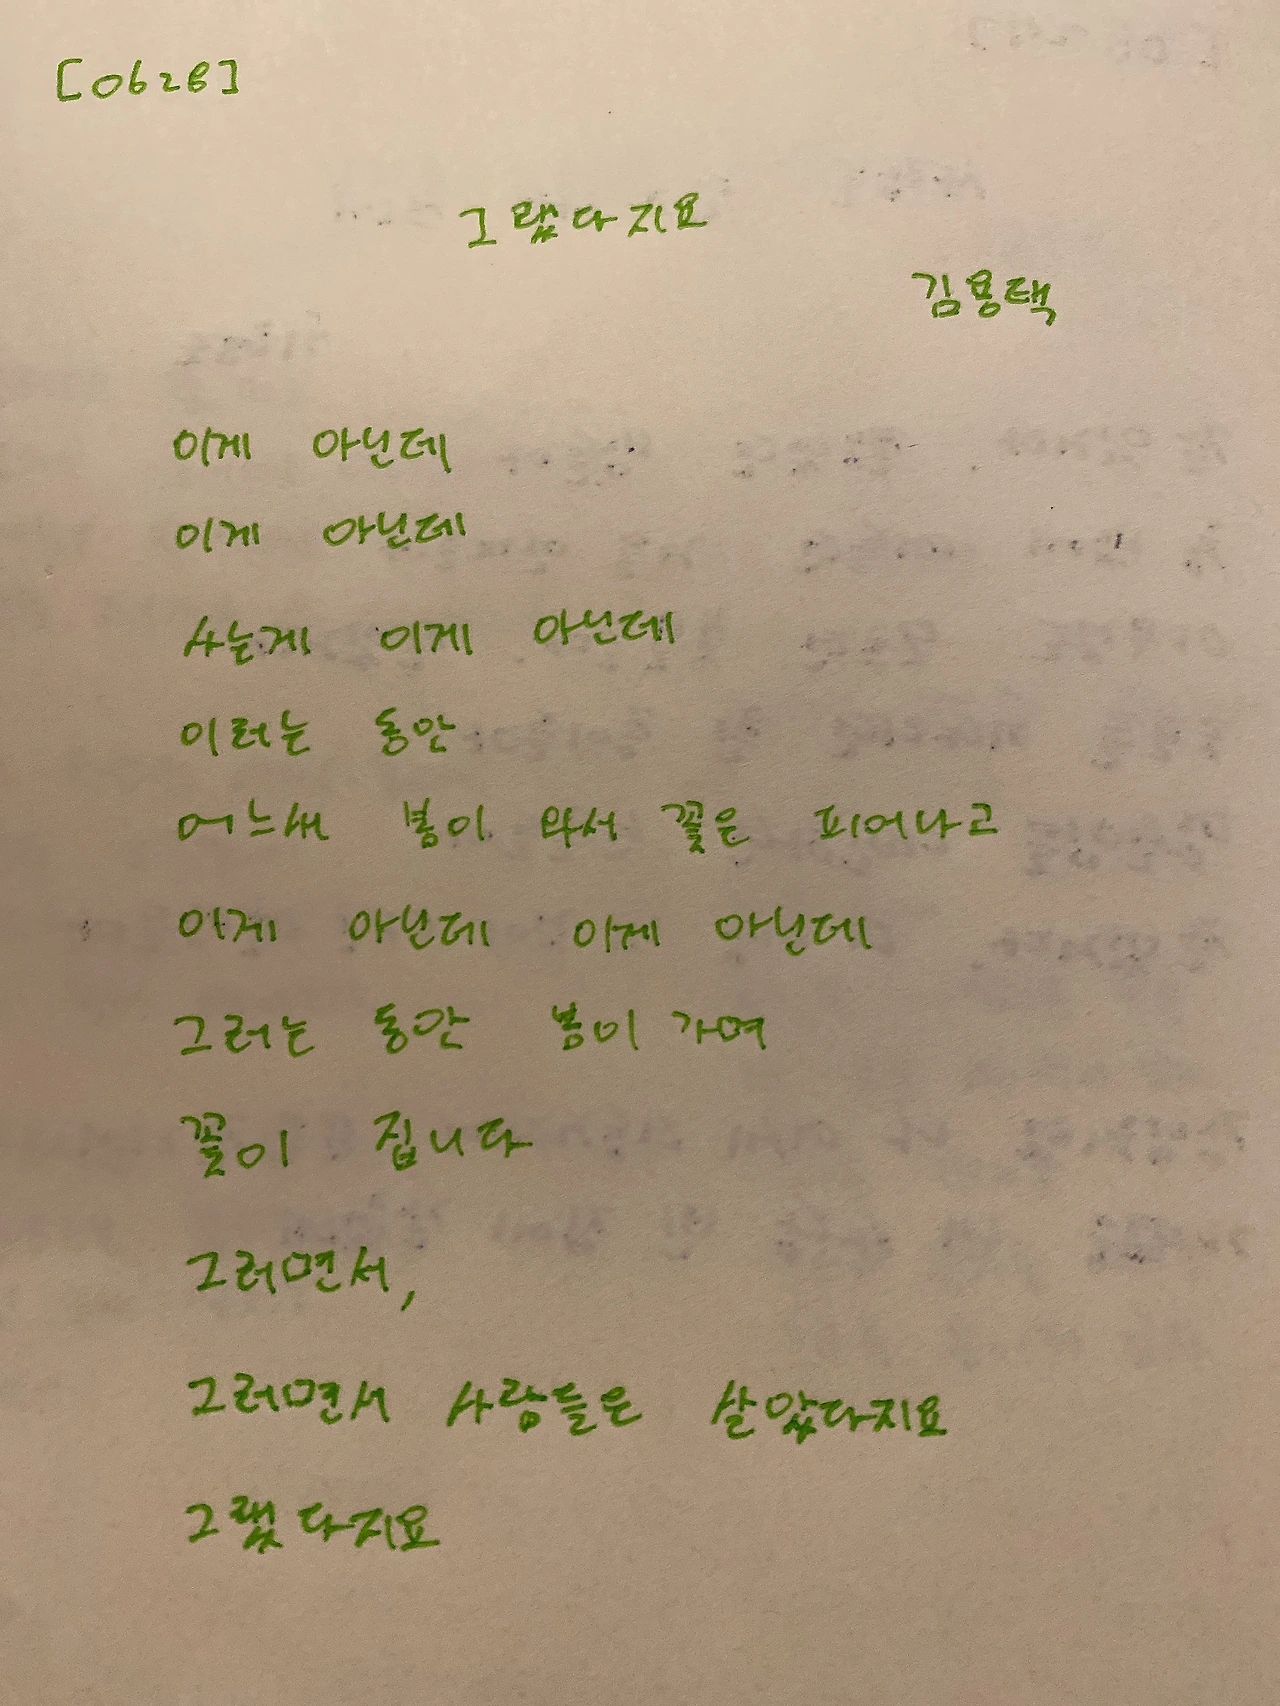 [0628]
그랬다지요
김용택
이게 아닌데
이게 아닌데
사는게 이게 아닌데
이러는 동안
어느새 봄이 와서 꽃은 피어나고
이게 아닌데 이게 아닌데
그러는 동안 봄이 가며
꽃이 집니다
그러면서,
그러면서 사람들은 살았다지요
그랬다지요